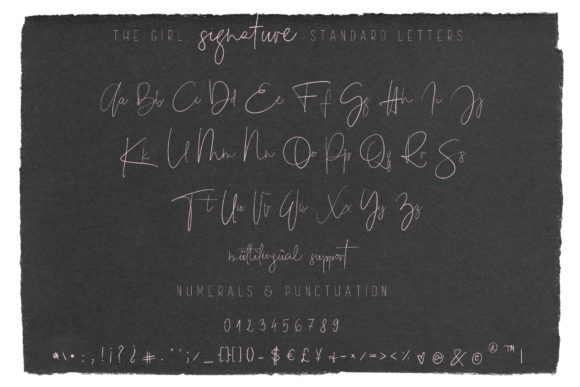 THE GIRL signature STANDARD LETTERS
Aa Bb Cc Dd Ee Ff Gg Hh Ii Jj
Kk Ll Mm Nn Oo Pp Qq Rr Ss
Tt Uu Vv Ww Xx Yy Zz
mültilingûal support
NUMERALS & PUNCTUATION
0123456789
*\•:,!¡?¿#.'';/_{}[]()-$€£¥+-×/=><%♡@&©®™|